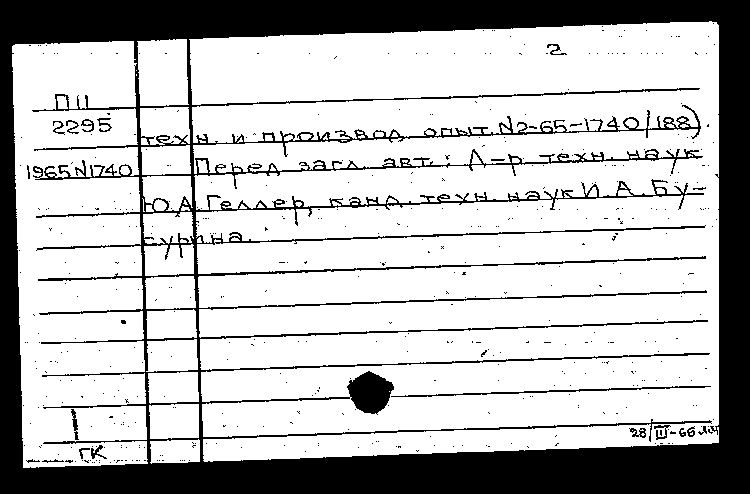 2
П II
2295 техн. и производ. опыт. N2-65-1740/188).
1965 N1740 Перед загл. авт.: Д-р техн. наук
Ю.А. Геллер, канд. техн. наук И.А. Бу-
бурина.
28/III-66
ГК